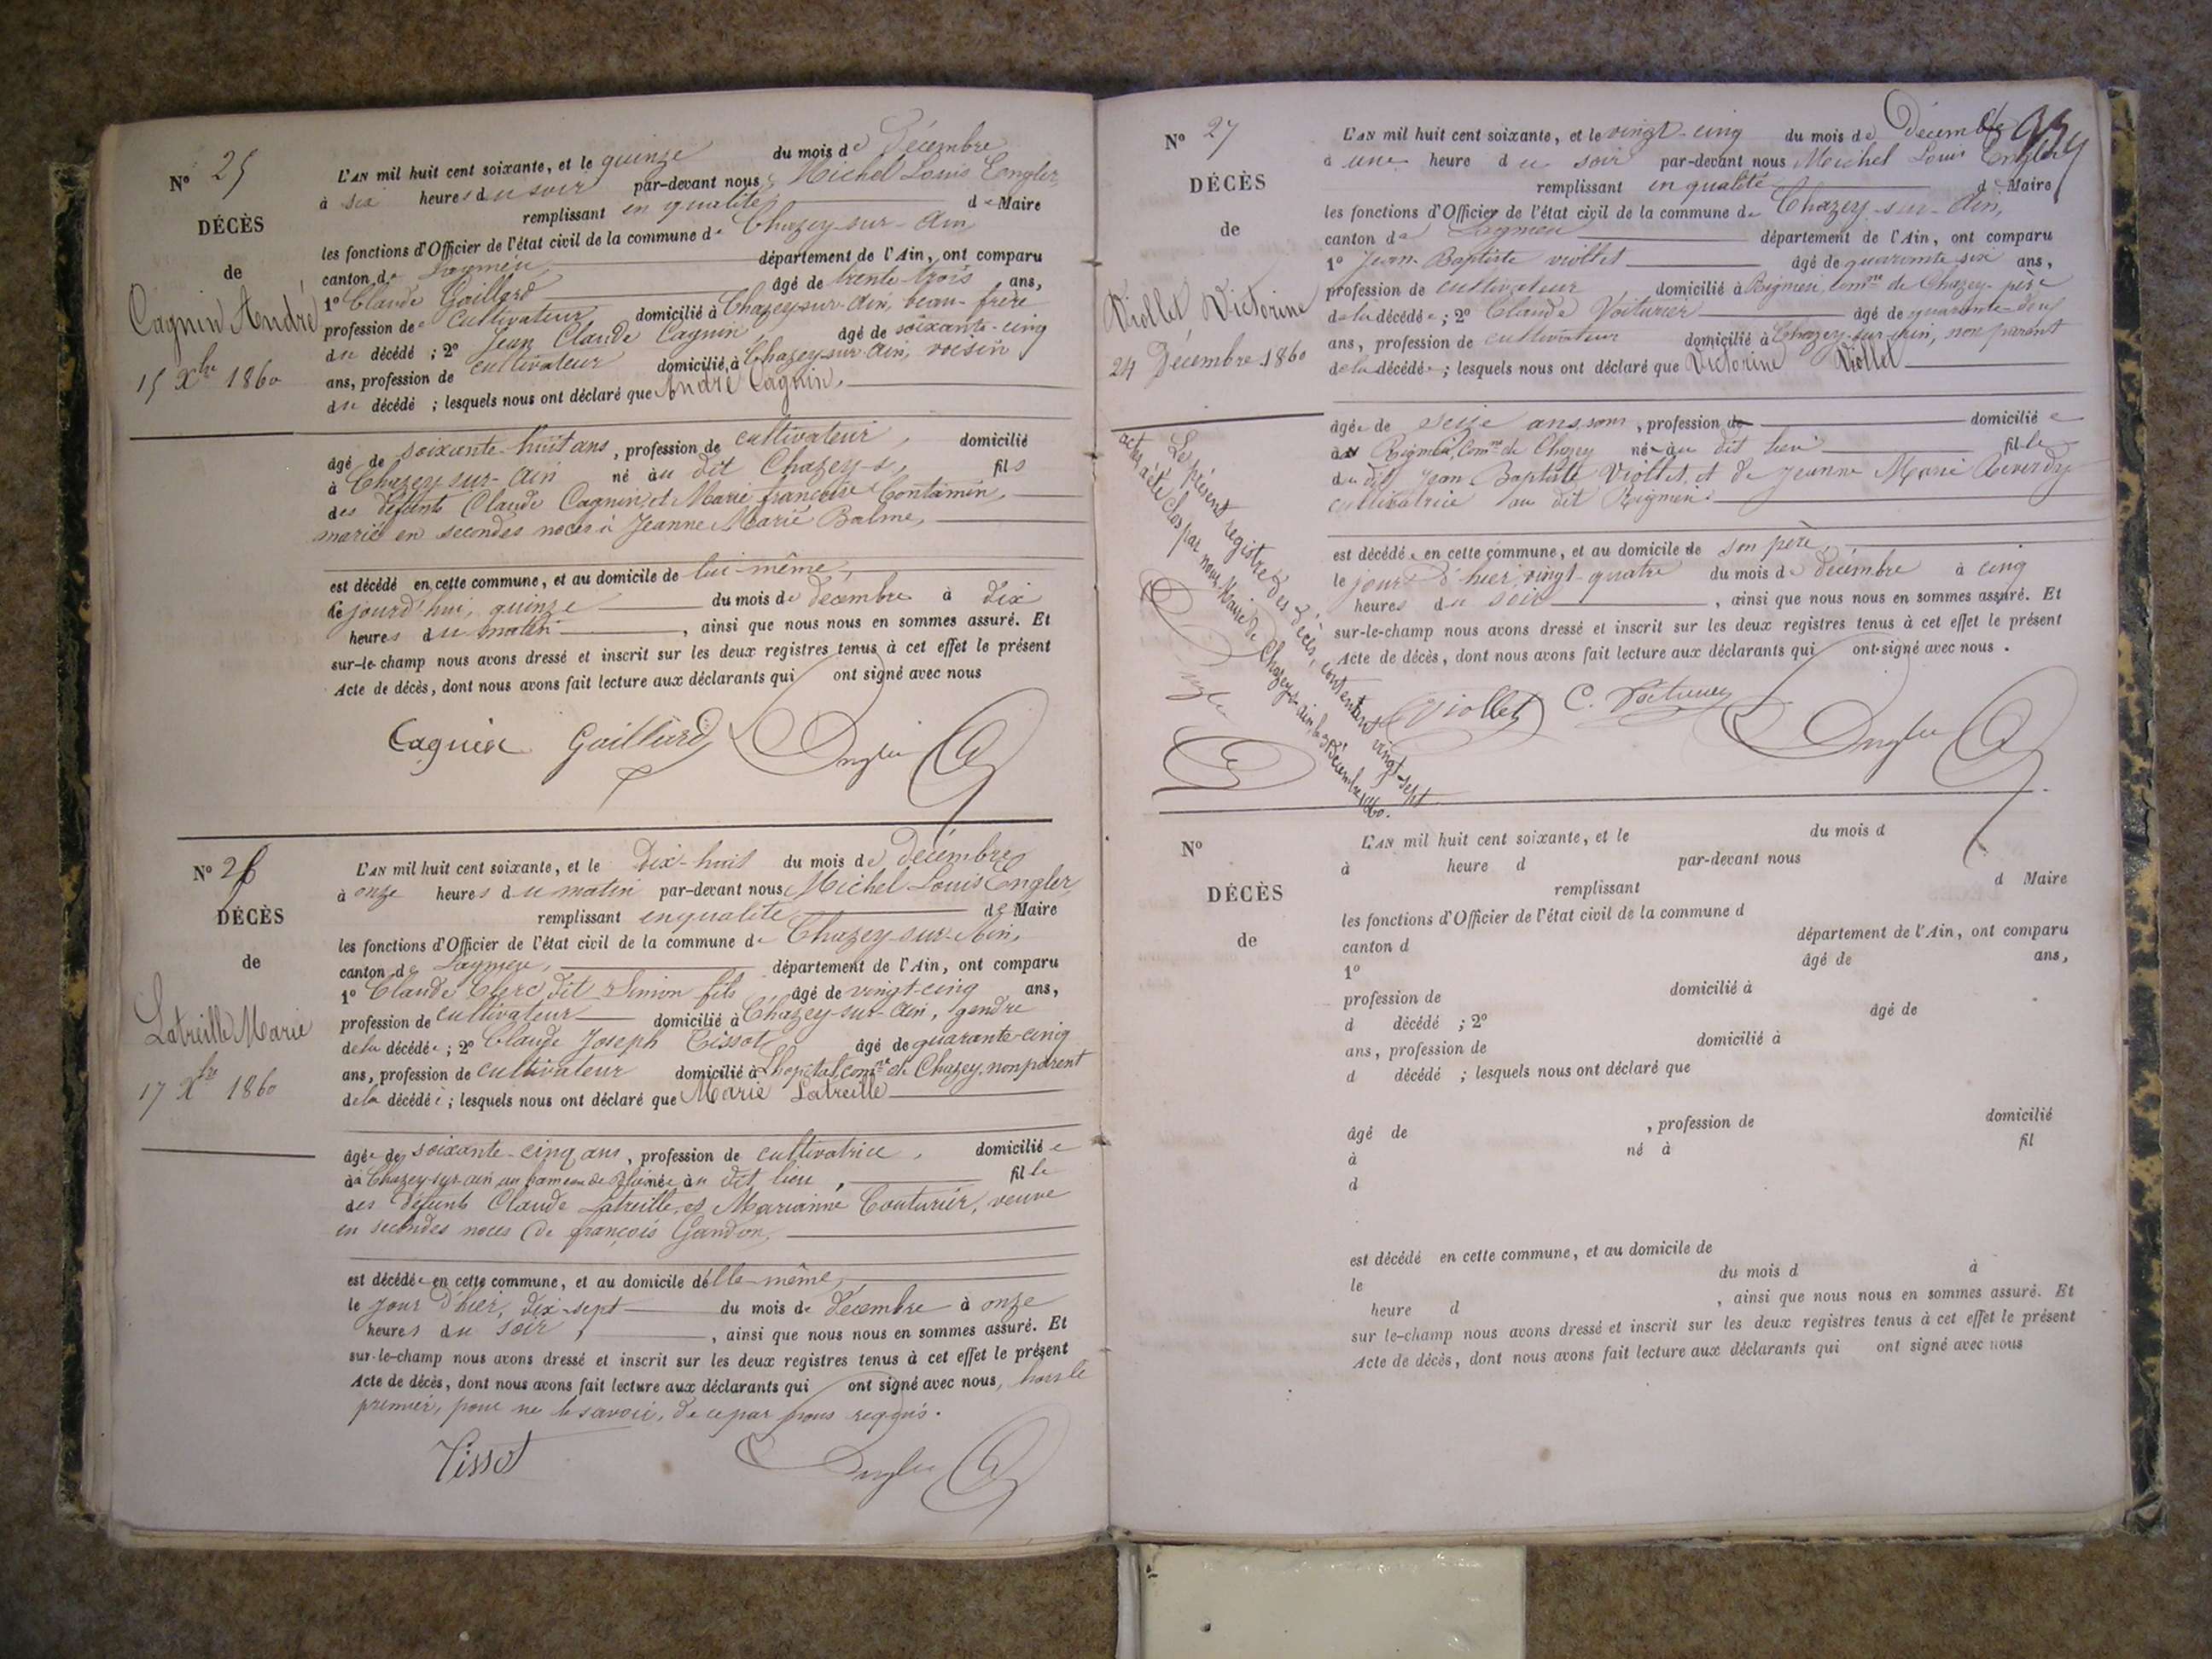 N° 25
DÉCÈS
de
Cagnin André
15 Xbre 1860
L'AN mil huit cent soixante, et le quinze du mois de Décembre
à six heures du soir par-devant nous Michel Louis Engler,
remplissant en qualité de Maire
les fonctions d'Officier de l'état civil de la commune de Chazey-sur-Ain,
canton de Lagnieu, département de l'Ain, ont comparu
1° Claude Gaillard âgé de trente-trois ans,
profession de cultivateur domicilié à Chazey-sur-Ain, beau-frère
du décédé ; 2° Jean Claude Cagnin âgé de soixante-cinq
ans, profession de cultivateur domicilié à Chazey-sur-Ain, voisin
du décédé ; lesquels nous ont déclaré que André Cagnin,
âgé de soixante-huit ans, profession de cultivateur, domicilié
à Chazey-sur-Ain né au dit Chazey-s, fils
des défunts Claude Cagnin et Marie françoise Contamin,
marié en secondes noces à Jeanne Marie Balme,
est décédé en cette commune, et au domicile de lui-même,
ce jourd'hui, quinze du mois de décembre à dix
heures du matin, ainsi que nous nous en sommes assuré. Et
sur-le-champ nous avons dressé et inscrit sur les deux registres tenus à cet effet le présent
Acte de décès, dont nous avons fait lecture aux déclarants qui ont signé avec nous
Cagnin Gaillard Engler
N° 26
DÉCÈS
de
Latreille Marie
17 Xbre 1860
L'AN mil huit cent soixante, et le Dix-huit du mois de décembre
à onze heures du matin par-devant nous Michel Louis Engler,
remplissant en qualité de Maire
les fonctions d'Officier de l'état civil de la commune de Chazey-sur-Ain,
canton de Lagnieu, département de l'Ain, ont comparu
1° Claude Clerc dit Simon fils âgé de vingt-cinq ans,
profession de cultivateur domicilié à Chazey-sur-Ain, gendre
de la décédée ; 2° Claude Joseph Tissot âgé de quarante-cinq
ans, profession de cultivateur domicilié à Lhopital, comne de Chazey, non parent
de la décédée ; lesquels nous ont déclaré que Marie Latreille
âgée de soixante-cinq ans, profession de cultivatrice, domiciliée
à Chazey-sur-ain au hameau de née au dit lieu, fille
des défunts Claude Latreille et Marianne Couturier, veuve
en secondes noces de françois Gandon,
est décédée en cette commune, et au domicile d'elle-même,
le jour d'hier, dix-sept du mois de décembre à onze
heures du soir, ainsi que nous nous en sommes assuré. Et
sur-le-champ nous avons dressé et inscrit sur les deux registres tenus à cet effet le présent
Acte de décès, dont nous avons fait lecture aux déclarants qui ont signé avec nous, hors le
premier, pour ne le savoir, de ce par nous requis.
Tissot Engler
N° 27
DÉCÈS
de
Viollet Victorine
24 Décembre 1860
L'AN mil huit cent soixante, et le vingt-cinq du mois de Décembre
à une heure du soir par-devant nous Michel Louis Engler
remplissant en qualité de Maire
les fonctions d'Officier de l'état civil de la commune de Chazey-sur-Ain,
canton de Lagnieu département de l'Ain, ont comparu
1° Jean-Baptiste viollet âgé de quarante six ans,
profession de cultivateur, domicilié à Rignieu, comne de Chazey père
de la décédée ; 2° Claude Voiturier âgé de quarante-deux
ans, profession de cultivateur domicilié à Chazey-sur-Ain, non parent
de la décédée ; lesquels nous ont déclaré que Victorine Viollet
âgée de seize ans, sans, profession de domiciliée
à Rignieu, comne de Chazey née au dit lieu fille
du dit Jean Baptiste Viollet, et de Jeanne Marie Reverdy
cultivatrice au dit Rignieu.
est décédée en cette commune, et au domicile de son père,
le jour d'hier, vingt-quatre du mois de décembre à cinq
heures du soir, ainsi que nous nous en sommes assuré. Et
sur-le-champ nous avons dressé et inscrit sur les deux registres tenus à cet effet le présent
Acte de décès, dont nous avons fait lecture aux déclarants qui ont signé avec nous.
Viollet C. Voiturier Engler
Le présent registre des décès, contenant vingt-sept
actes, a été clos par nous Maire de Chazey-sur-ain, le décembre 1860.
Engler
N°
DÉCÈS
de
L'AN mil huit cent soixante, et le du mois d
à heure d par-devant nous
remplissant d Maire
les fonctions d'Officier de l'état civil de la commune d
canton d département de l'Ain, ont comparu
1° âgé de ans,
profession de domicilié à
d décédé ; 2° âgé de
ans, profession de domicilié à
d décédé ; lesquels nous ont déclaré que
âgé de , profession de domicilié
à né à fil
d
est décédé en cette commune, et au domicile de
le du mois d à
heure d , ainsi que nous nous en sommes assuré. Et
sur le-champ nous avons dressé et inscrit sur les deux registres tenus à cet effet le présent
Acte de décès, dont nous avons fait lecture aux déclarants qui ont signé avec nous